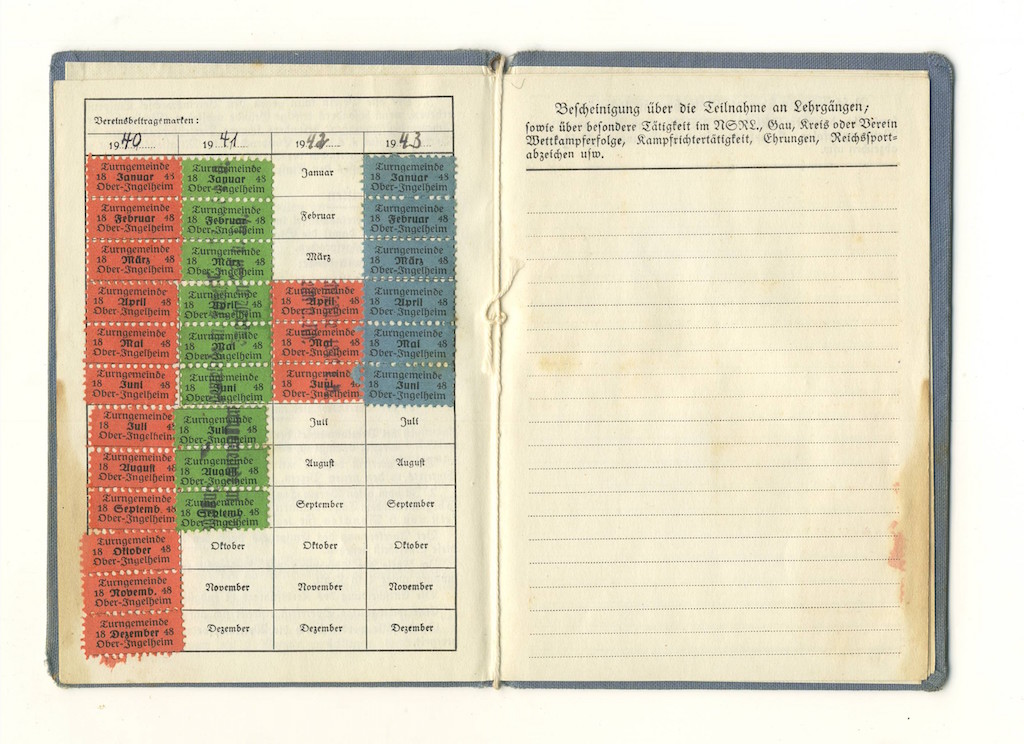 Vereinsbeitragsmarken:
1940 1941 1942 1943
Turngemeinde Turngemeinde Turngemeinde
18 Januar 48 18 Januar 48 Januar 18 Januar 48
Ober-Ingelheim Ober-Ingelheim Ober-Ingelheim
Turngemeinde Turngemeinde Turngemeinde
18 Februar 48 18 Februar 48 Februar 18 Februar 48
Ober-Ingelheim Ober-Ingelheim Ober-Ingelheim
Turngemeinde Turngemeinde Turngemeinde
18 März 48 18 März 48 März 18 März 48
Ober-Ingelheim Ober-Ingelheim Ober-Ingelheim
Turngemeinde Turngemeinde Turngemeinde Turngemeinde
18 April 48 18 April 48 18 April 48 18 April 48
Ober-Ingelheim Ober-Ingelheim Ober-Ingelheim Ober-Ingelheim
Turngemeinde Turngemeinde Turngemeinde Turngemeinde
18 Mai 48 18 Mai 48 18 Mai 48 18 Mai 48
Ober-Ingelheim Ober-Ingelheim Ober-Ingelheim Ober-Ingelheim
Turngemeinde Turngemeinde Turngemeinde Turngemeinde
18 Juni 48 18 Juni 48 18 Juni 48 18 Juni 48
Ober-Ingelheim Ober-Ingelheim Ober-Ingelheim Ober-Ingelheim
Turngemeinde Turngemeinde
18 Juli 48 18 Juli 48 Juli Juli
Ober-Ingelheim Ober-Ingelheim
Turngemeinde Turngemeinde
18 August 48 18 August 48 August August
Ober-Ingelheim Ober-Ingelheim
Turngemeinde Turngemeinde
18 Septemb. 48 18 Septemb. 48 September September
Ober-Ingelheim Ober-Ingelheim
Turngemeinde
18 Oktober 48 Oktober Oktober Oktober
Ober-Ingelheim
Turngemeinde
18 Novemb. 48 November November November
Ober-Ingelheim
Turngemeinde
18 Dezember 48 Dezember Dezember Dezember
Ober-Ingelheim
Bescheinigung über die Teilnahme an Lehrgängen;
sowie über besondere Tätigkeit im NSRL., Gau, Kreis oder Verein
Wettkampferfolge, Kampfrichtertätigkeit, Ehrungen, Reichssport-
abzeichen usw.